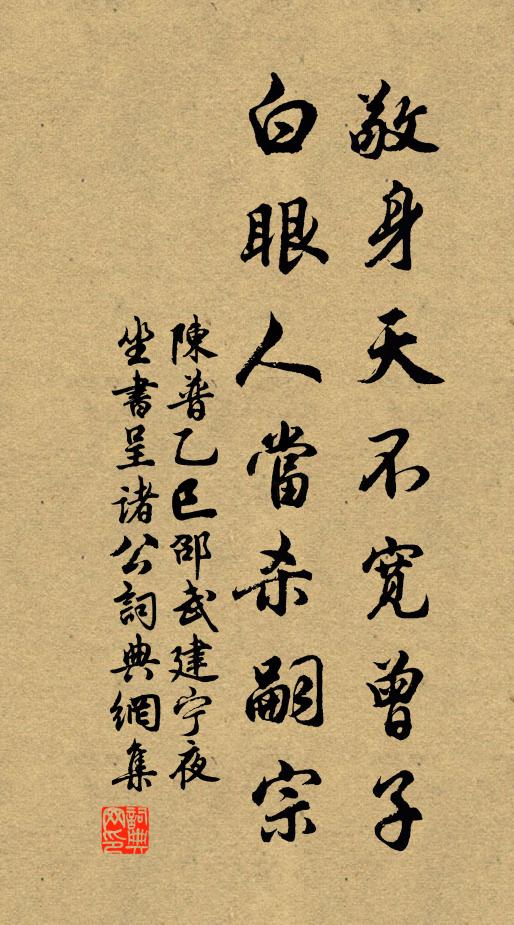 敬身天不寬曾子
白眼人當杀嗣宗
陳普乙巳邵武建宁夜
坐書呈诸公詞典網集
詞典网印